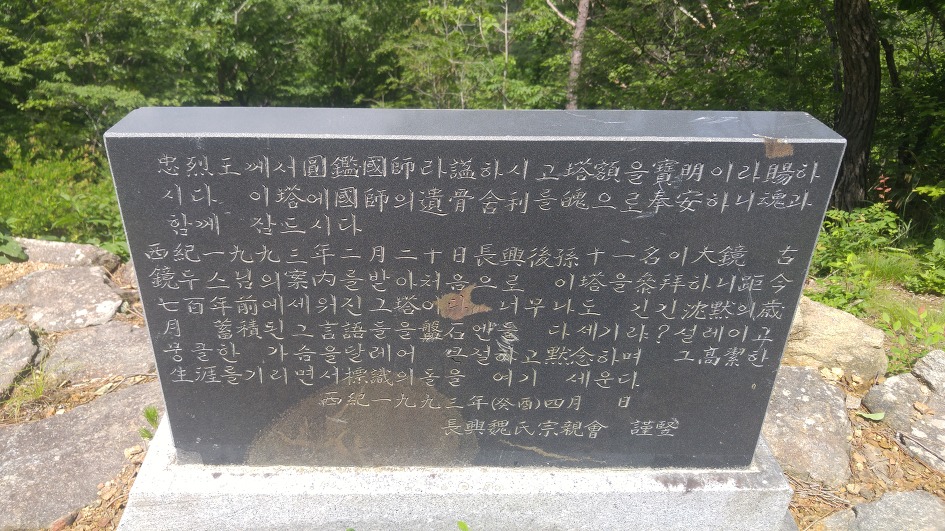 忠烈王께서圓鑑國師라謚하시고塔額을寶明이라賜하
시다. 이塔에國師의遺骨舍利를魄으로奉安하니魂과
함께 잠드시다
西紀一九九三年二月二十日長興後孫十一名이大鏡 古
鏡두스님의案內를받아처음으로 이塔을參拜하니距今
七百年前에세워진그塔 너무나도 긴긴沈黙의歲
月 蓄積된그言語들을盤石엔들 다세기랴?설레이고
뭉클한 가슴을달레어 큰절하고黙念하며 그高潔한
生涯를기리면서標識의돌을 여기 세운다.
西紀一九九三年(癸酉)四月 日
長興魏氏宗親會 謹竪